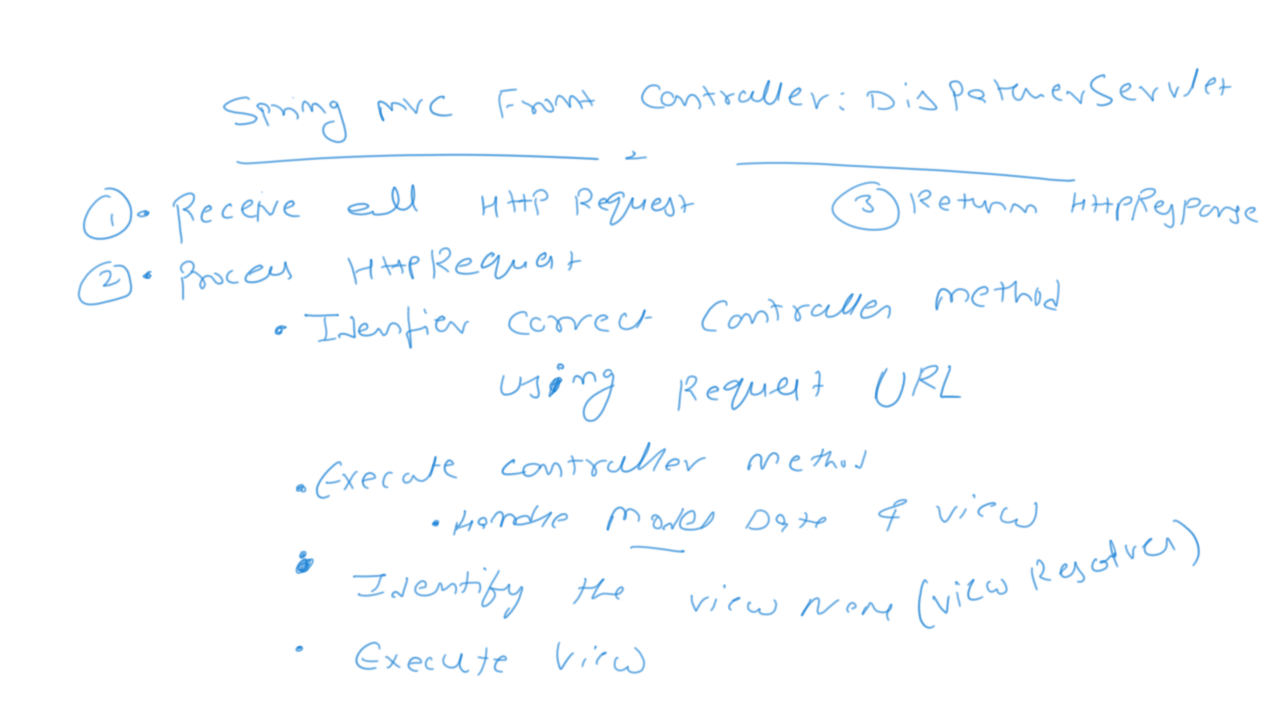 Spring mvc Front Controller: DispatcherServlet
① • Receive all HTTP Request
③ Return HTTPResponse
② • Process HTTPRequest
• Idenfier correct Controller method
using Request URL
• Execute controller method
• Handle Model Data & view
• Identify the view Name (view Resolver)
• Execute View